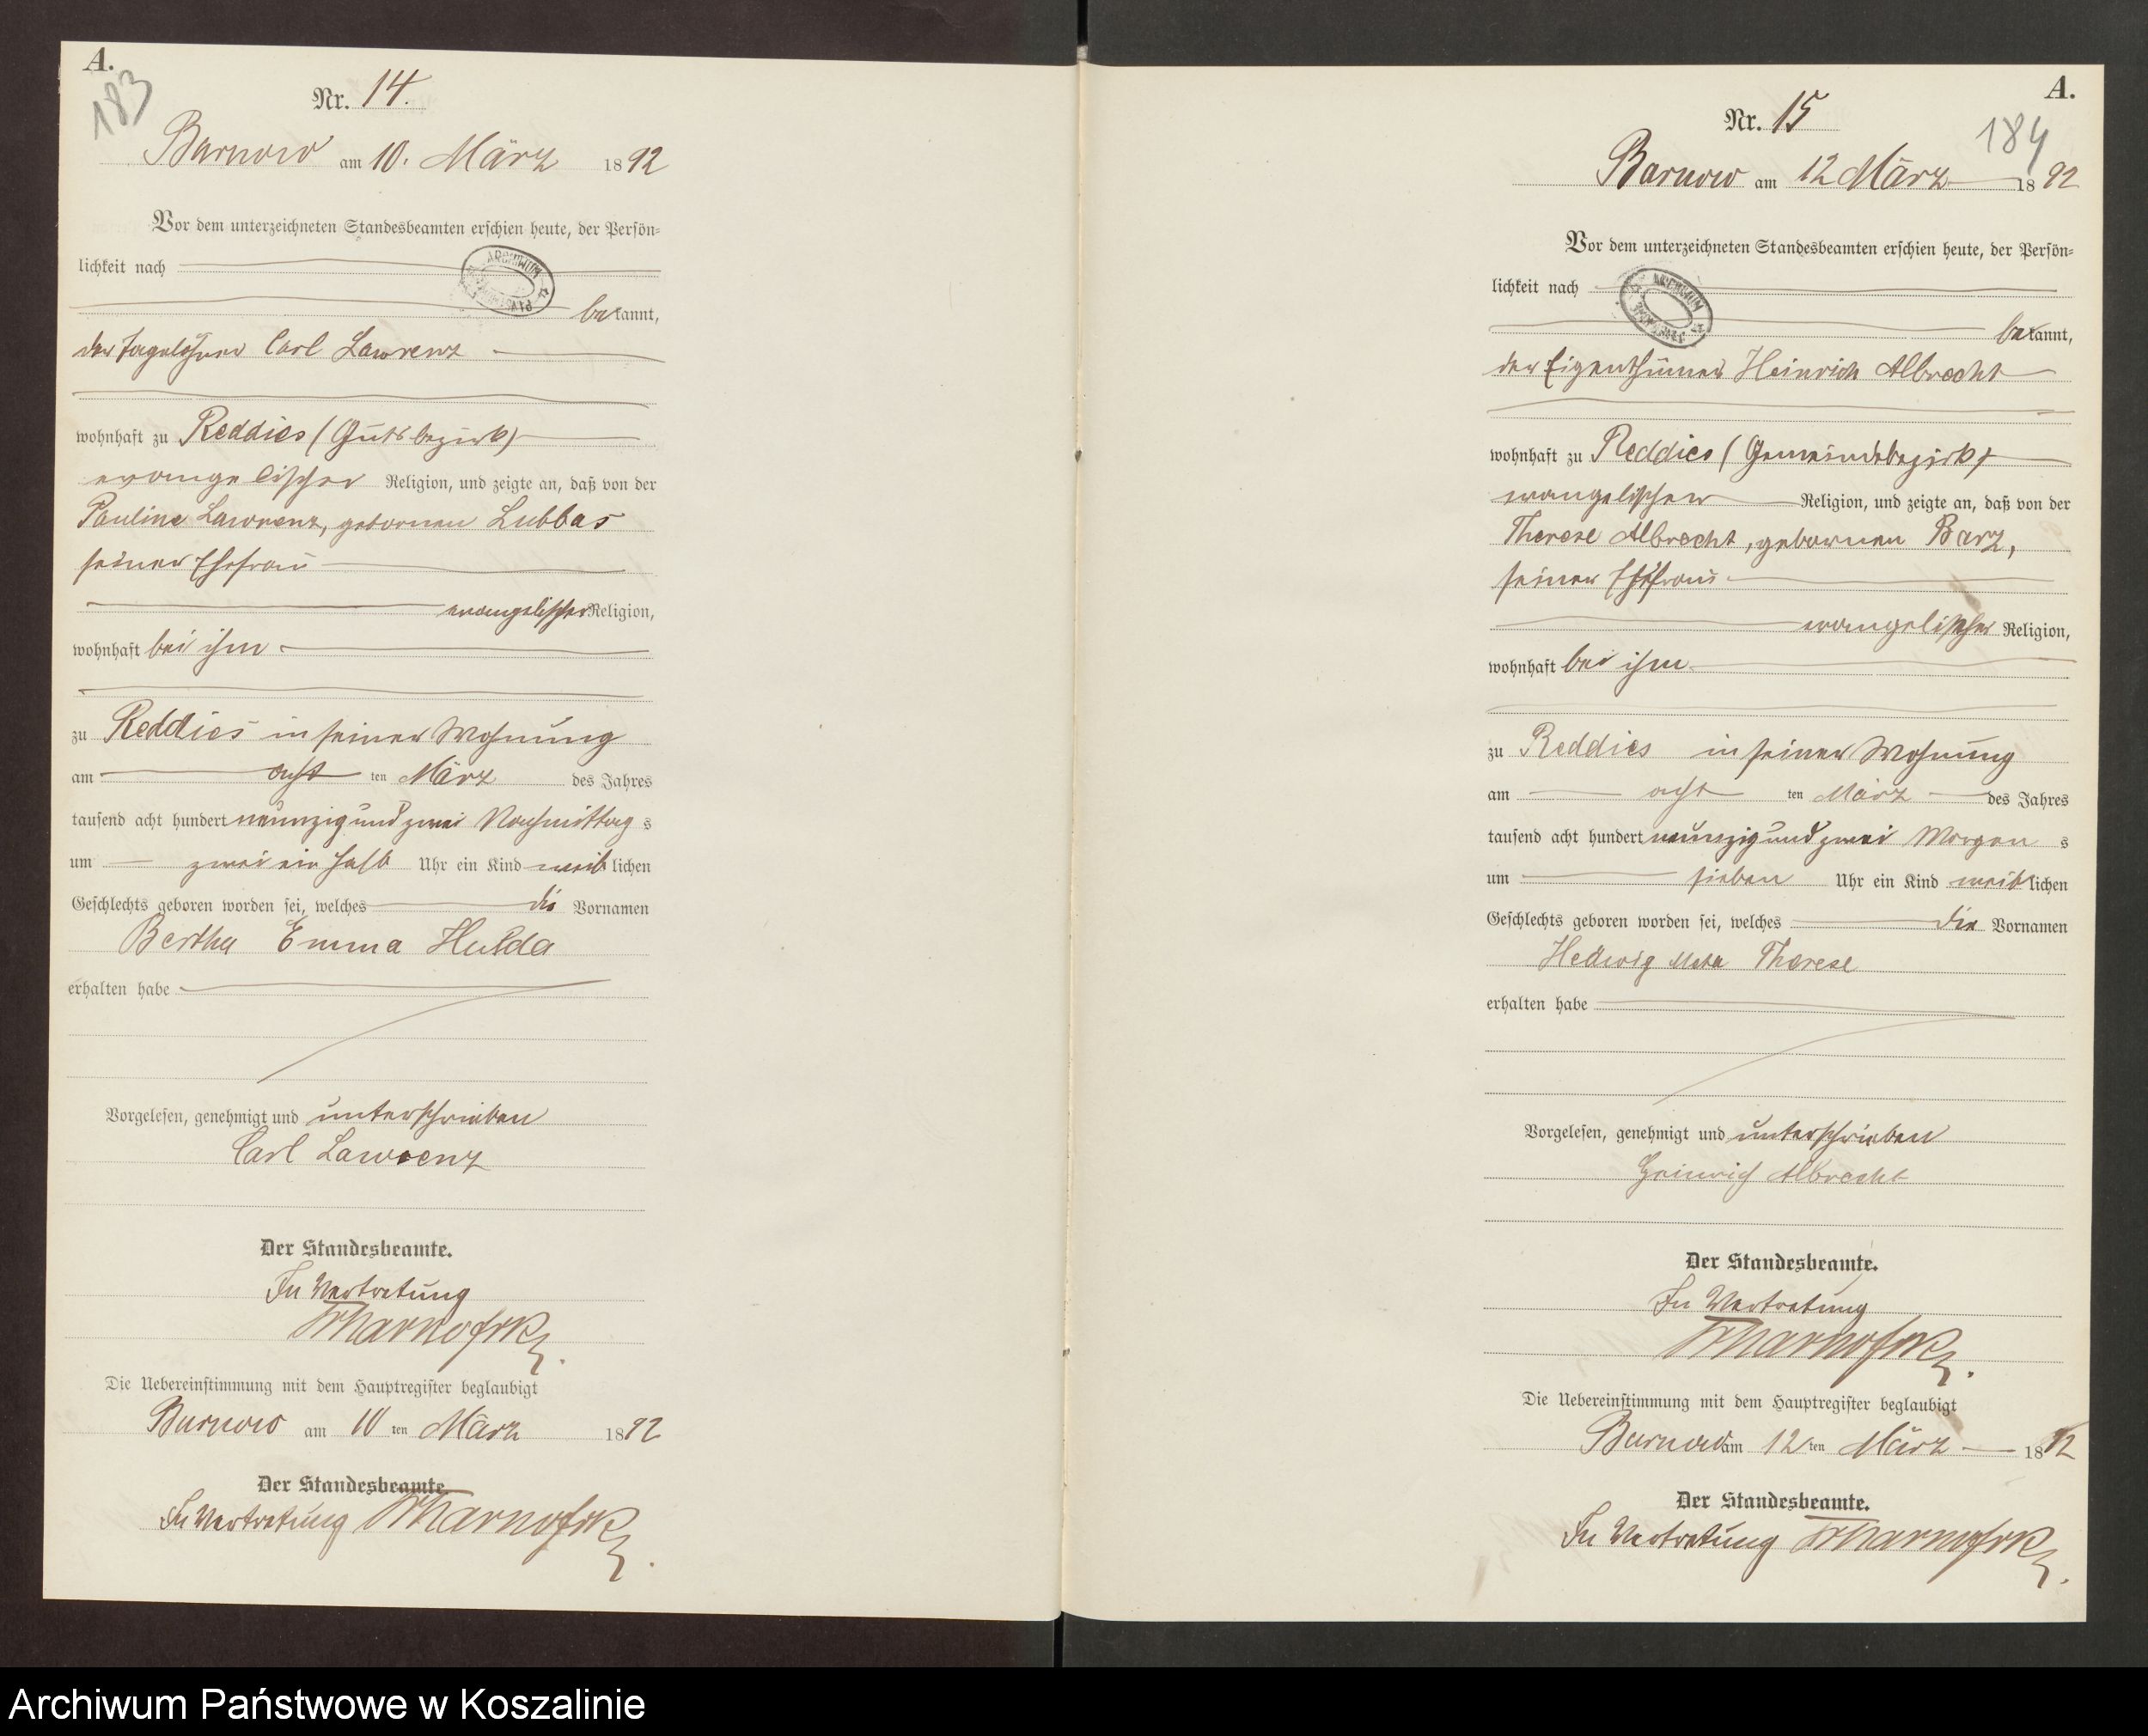 A.
183
Nr. 14.
Barnow am 10. März 1892
Vor dem unterzeichneten Standesbeamten erschien heute, der Persön-
lichkeit nach
bekannt,
der Tagelöhner Carl Lawrenz
wohnhaft zu Reddies (Gutsbezirk)
evangelischer Religion, und zeigte an, daß von der
Pauline Lawrenz, gebornen Lubbas
seiner Ehefrau
evangelischer Religion,
wohnhaft bei ihm
zu Reddies in seiner Wohnung
am acht ten März des Jahres
tausend acht hundert neunzig und zwei Nachmittag s
um zwei ein halb Uhr ein Kind weiblichen
Geschlechts geboren worden sei, welches die Vornamen
Bertha Emma Hulda
erhalten habe
Vorgelesen, genehmigt und unterschrieben
Carl Lawrenz
Der Standesbeamte.
In Vertretung
Die Uebereinstimmung mit dem Hauptregister beglaubigt
Barnow am 10 ten März 1892
Der Standesbeamte.
In Vertretung
A.
184
Nr. 15
Barnow am 12 März 1892
Vor dem unterzeichneten Standesbeamten erschien heute, der Persön-
lichkeit nach
ARCHIWUM
bekannt,
der Eigenthümer Heinrich Albrecht
wohnhaft zu Reddies (Gemeindebezirk)
evangelischer Religion, und zeigte an, daß von der
Therese Albrecht, gebornen Barz,
seiner Ehefrau
evangelischer Religion,
wohnhaft bei ihm
zu Reddies in seiner Wohnung
am acht ten März des Jahres
tausend acht hundert neunzig und zwei Morgen s
um sieben Uhr ein Kind weiblichen
Geschlechts geboren worden sei, welches die Vornamen
Hedwig Meta Therese
erhalten habe
Vorgelesen, genehmigt und unterschrieben
Heinrich Albrecht
Der Standesbeamte.
In Vertretung
Die Uebereinstimmung mit dem Hauptregister beglaubigt
Barnow am 12 ten März 1892
Der Standesbeamte.
In Vertretung
Archiwum Państwowe w Koszalinie